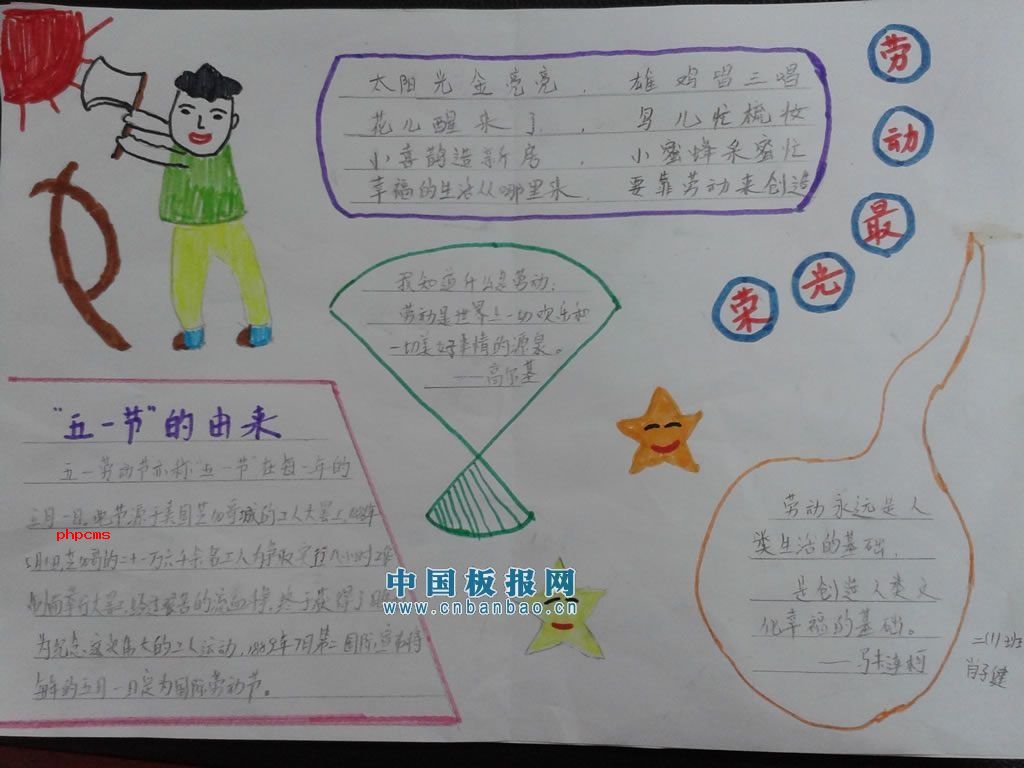 劳
动
最
光
荣
太阳光金亮亮，雄鸡唱三唱
花儿醒来了，鸟儿忙梳妆
小喜鹊造新房，小蜜蜂采蜜忙
幸福的生活从哪里来，要靠劳动来创造
我知道什么是劳动：
劳动是世界上一切欢乐和
一切美好事情的源泉。
——高尔基
"五一节"的由来
五一劳动节亦称"五一节"在每一年的
五月一日。此节源于美国芝加哥城的工人大罢工，
5月1日，芝加哥的二十一万六千余名工人为争取实行八小时工作
制而举行大罢工，经过艰苦的流血，终于获得了
为纪念这次伟大的工人运动，1889年7月第二国际宣布将
每年的五月一日定为国际劳动节。
phpcms
中国板报网
www.cnbanbao.cn
劳动永远是人
类生活的基础，
是创造人类文
化幸福的基础。
——马卡连柯
二(1)班
肖子健